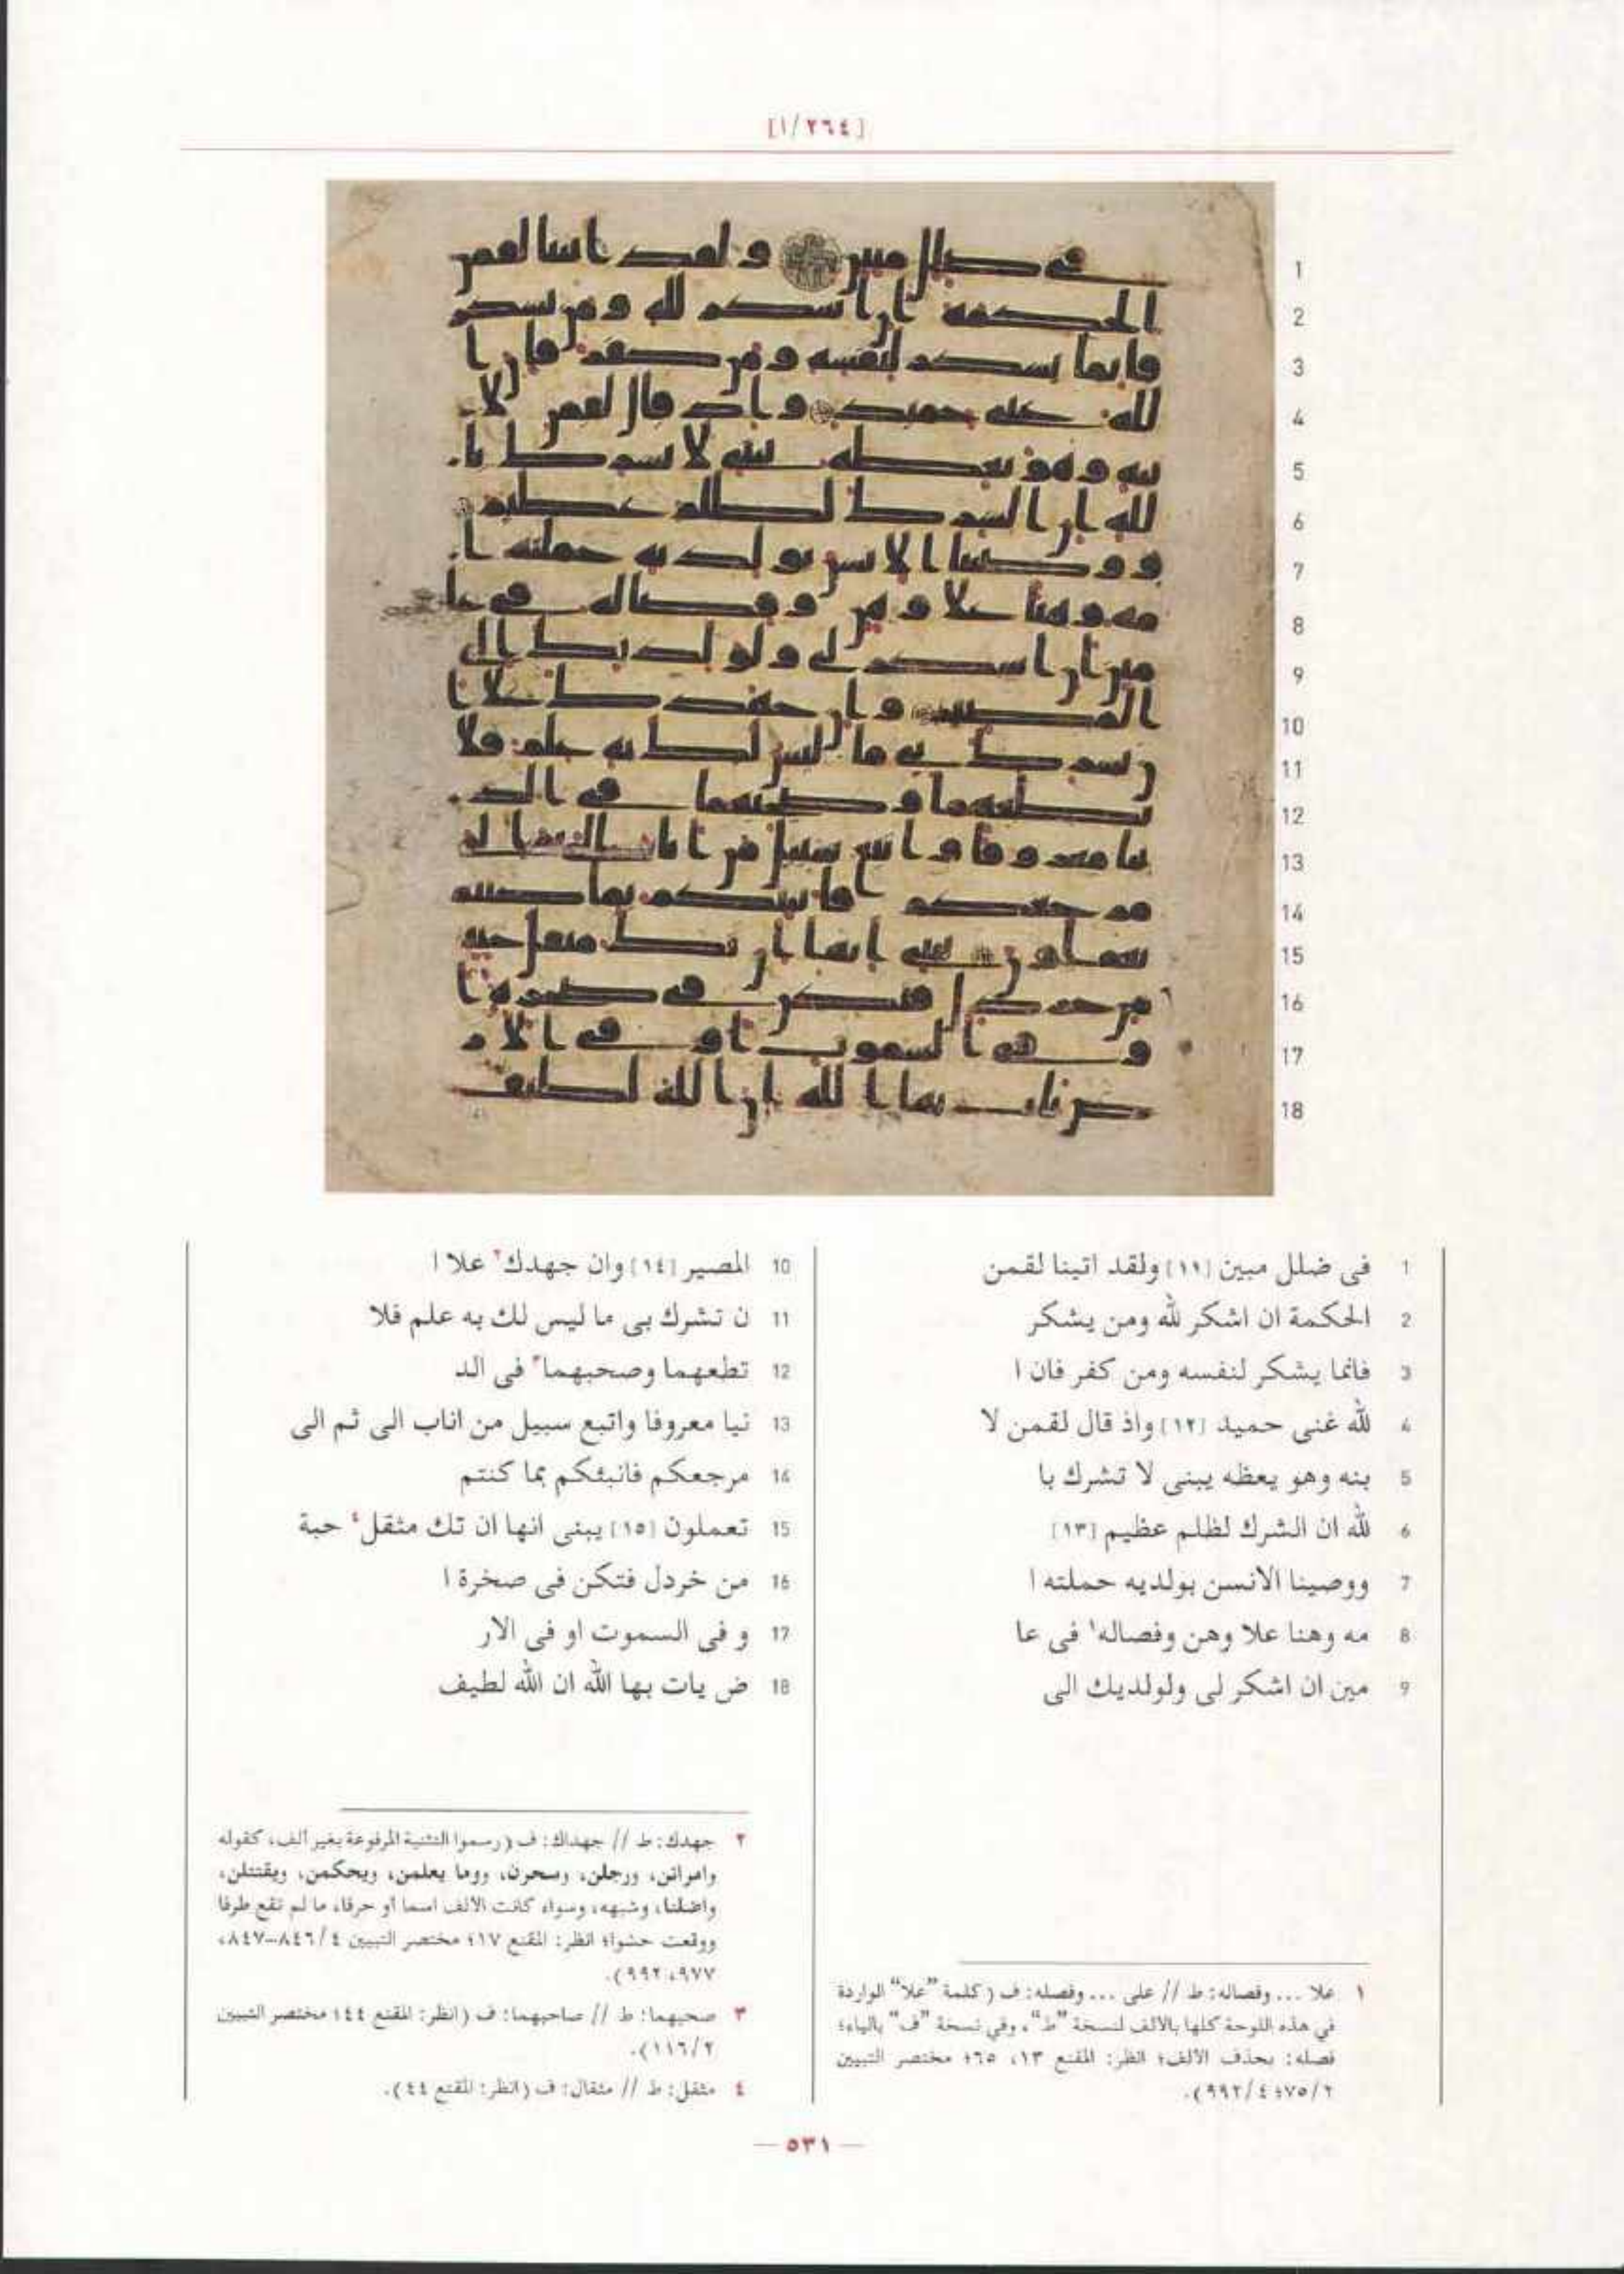 [١/٢٦٤]
1 فى ضلل مبين [١١] ولقد اتينا لقمن
2 الحكمة ان اشكر لله ومن يشكر
3 فانما يشكر لنفسه ومن كفر فان ا
4 لله غنى حميد [١٢] واذ قال لقمن لا
5 بنه وهو يعظه يبنى لا تشرك با
6 لله ان الشرك لظلم عظيم [١٣]
7 ووصينا الانسن بولديه حملته ا
8 مه وهنا علا وهن وفصاله١ فى عا
9 مين ان اشكر لى ولولديك الى
10 المصير [١٤] وان جهدك٢ علا ا
11 ن تشرك بى ما ليس لك به علم فلا
12 تطعهما وصحبهما٣ فى الد
13 نيا معروفا واتبع سبيل من اناب الى ثم الى
14 مرجعكم فانبئكم بما كنتم
15 تعملون [١٥] يبنى انها ان تك مثقل٤ حبة
16 من خردل فتكن فى صخرة ا
17 و فى السموت او فى الار
18 ض يات بها الله ان الله لطيف
١ علا ... وفصاله: ط // على ... وفصله: ف (كلمة "علا" الواردة
في هذه اللوحة كلها بالالف لنسخة "ط"، وفي نسخة "ف" بالياء؛
فصله: بحذف الالف؛ انظر: المقنع ١٣، ٦٥؛ مختصر التبيين
٧٥/٢؛ ٩٩٢/٤).
٢ جهدك: ط // جهداك: ف (رسموا التثنية المرفوعة بغير ألف، كقوله
وامراتن، ورجلن، وسحرن، ووما يعلمن، ويحكمن، ويقتتلن،
واضلنا، وشبهه، وسواء كانت الالف اسما أو حرفا، ما لم تقع طرفا
ووقعت حشوا؛ انظر: المقنع ١٧؛ مختصر التبيين ٨٤٦/٤-٨٤٧،
٩٧٧، ٩٩٢).
٣ صحبهما: ط // صاحبهما: ف (انظر: المقنع ٤٤؛ مختصر التبيين
١١٦/٢).
٤ مثقل: ط // مثقال: ف (انظر: المقنع ٤٤).
— ٥٣١ —